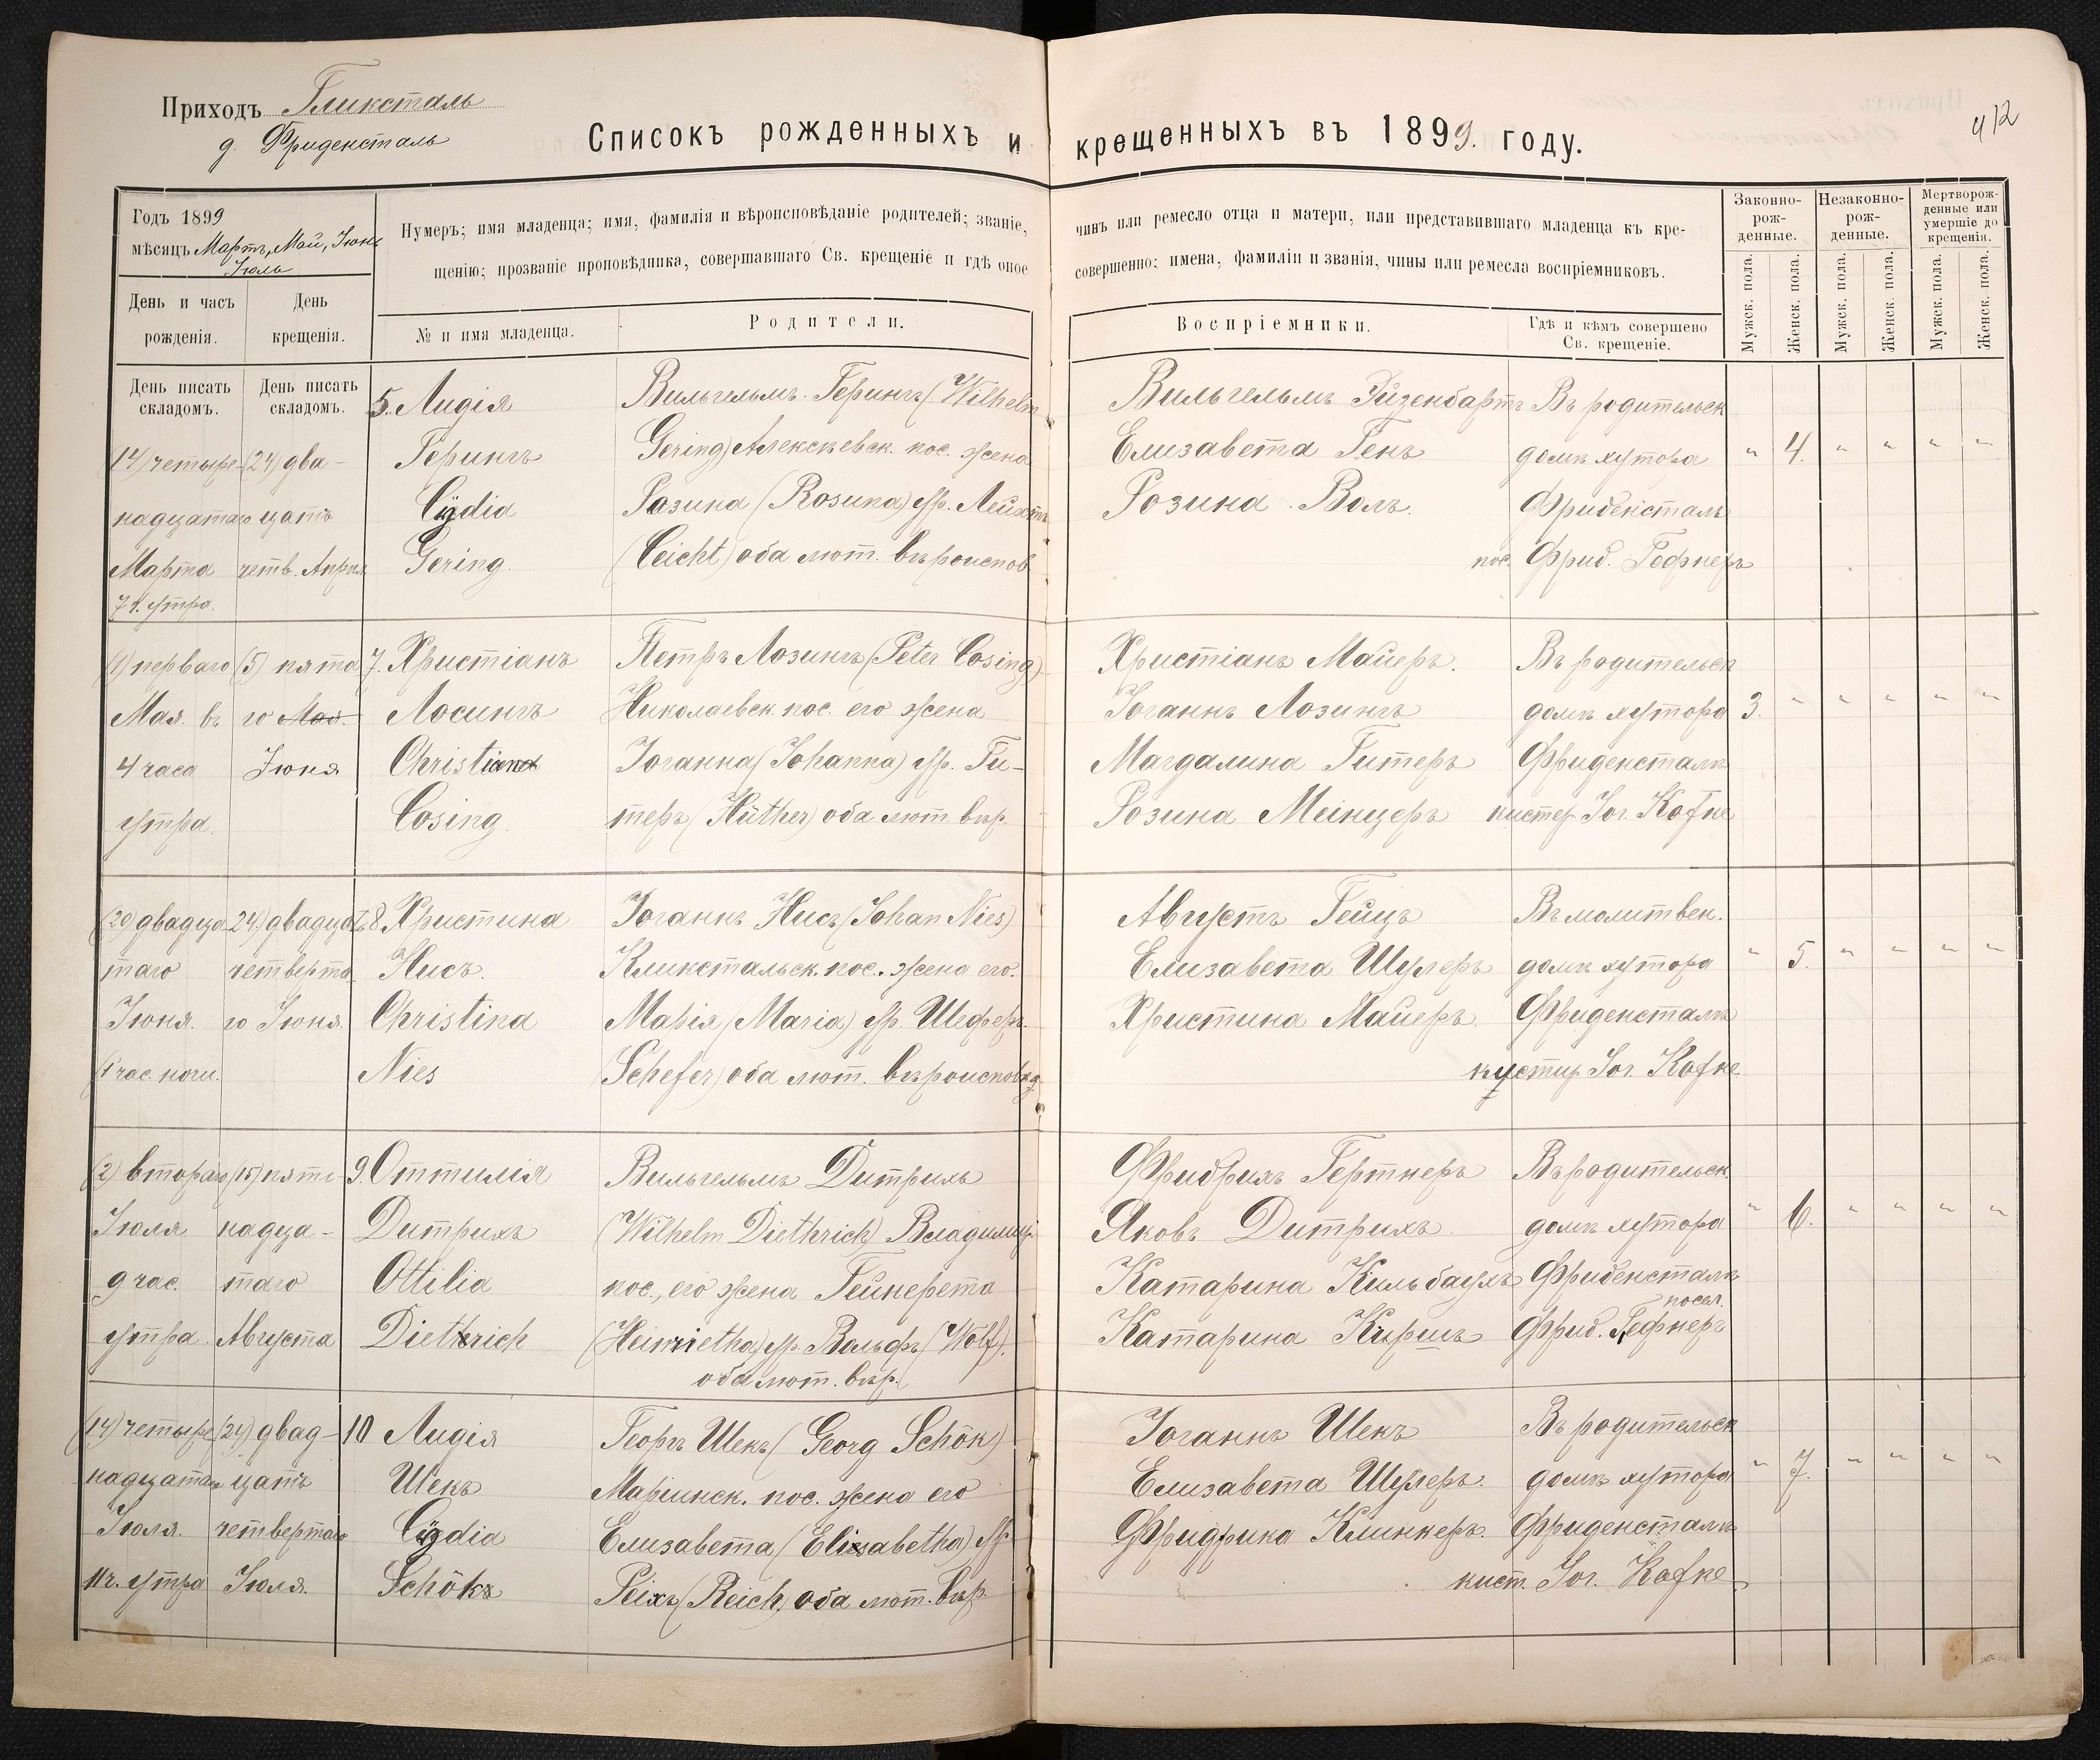 Приходъ Гликсталь
д. Фриденсталь
412
Списокъ рожденныхъ и крещенныхъ въ 1899. году.
Годъ 1899
мѣсяцъ Мартъ, Май, Іюнь
Іюль
Нумеръ; имя младенца; имя, фамилія и вѣроисповѣданіе родителей; званіе, чинъ или ремесло отца и матери, или представившаго младенца къ кре-
щенію; прозваніе проповѣдника, совершавшаго Св. крещеніе и гдѣ оное совершенно; имена, фамиліи и званія, чины или ремесла воспріемниковъ.
Законно-
рож-
денные.
Незаконно-
рож-
денные.
Мертворож-
денные или
умершіе до
крещенія.
День и часъ
рожденія.
День
крещенія.
№ и имя младенца.
Родители.
Воспріемники.
Гдѣ и кѣмъ совершено
Св. крещеніе.
Мужск. пола.
Женск. пола.
Мужск. пола.
Женск. пола.
Мужск. пола.
Женск. пола.
День писать
складомъ.
День писать
складомъ.
(14) четыре-
надцатаго
Марта
7 ч. утра.
(24) два-
цать
четв. Апрѣля
5. Лидія
Герингъ
Lydia
Gering.
Вильгельмъ Герингъ (Wilhelm
Gering) Алексѣевск. пос. жена
Розина (Rosina) ур. Лейхтъ
(Leicht) оба лют. вѣроиспов
Вильгельмъ Эйзенбартъ
Елизавета Генъ
Розина Волъ.
Въ родительск
домѣ хутора
Фриденсталь
пос. Фрид. Гефнеръ
" 4. " " " "
(1) перваго
Мая. въ
4 часа
утра.
(5) пята
го Мая.
Іюня
7. Христіанъ
Лосингъ
Christian
Losing.
Петръ Лозингъ (Peter Losing)
Николаевск. пос. его жена
Іоганна (Johanna) ур. Ги-
теръ (Hüther) оба лют. вѣр.
Христіанъ Майеръ.
Іоганнъ Лозингъ
Магдалина Гитеръ
Розина Меинцеръ
Въ родительск
домѣ хутора
Фриденсталь
кистер. Іог. Kofke
3. " " " " "
(20) двадца
таго
Іюня.
1 час. ночи.
24) двадцать
четверта
го Іюня.
8. Христина
Нисъ.
Christina
Nies
Іоганнъ Нисъ (Johan Nies)
Кликстальск. пос. жена его.
Марія (Maria) ур. Шеферъ.
(Schefer) оба лют. вѣроисповѣд.
Августъ Гейцъ
Елизавета Шулеръ
Христина Майеръ.
Въ молитвен.
домѣ хутора
Фриденсталь
кустир Іог. Kofke
" 5. " " " "
(2) втораго
Іюля
9 час.
утра.
(15) пятн
надца-
таго
Августа
9. Оттилія
Дитрихъ
Ottilia
Diethrich
Вильгельмъ Дитрихъ
(Wilhelm Diethrich) Владимир.
пос., его жена Гейнерета
(Heinrietha) ур. Вольфъ (Wolf).
оба лют. вѣр.
Фридрихъ Гертнеръ
Яковъ Дитрихъ.
Катарина Кильбаухъ
Катарина Киршъ
Въ родительск.
домѣ хутора
Фриденсталь
посел.
Фрид. Гефнеръ
" 6. " " " "
(14) четыре
надцатаго
Іюля.
11 ч. утра
(24) двад-
цать
четвертаго
Іюля.
10 Лидія
Шекъ
Lydia
Schök
Георгъ Шекъ (Georg Schök)
Маріинск. пос. жена его
Елизавета (Elisabetha) ур.
Реіхъ (Reich) оба лют. вѣр.
Іоганнъ Шекъ
Елизавета Шулеръ.
Фридрика Клинкеръ.
Въ родительск
домѣ хутора
Фриденсталь
кист. Іог. Kofke
" 7. " " " "